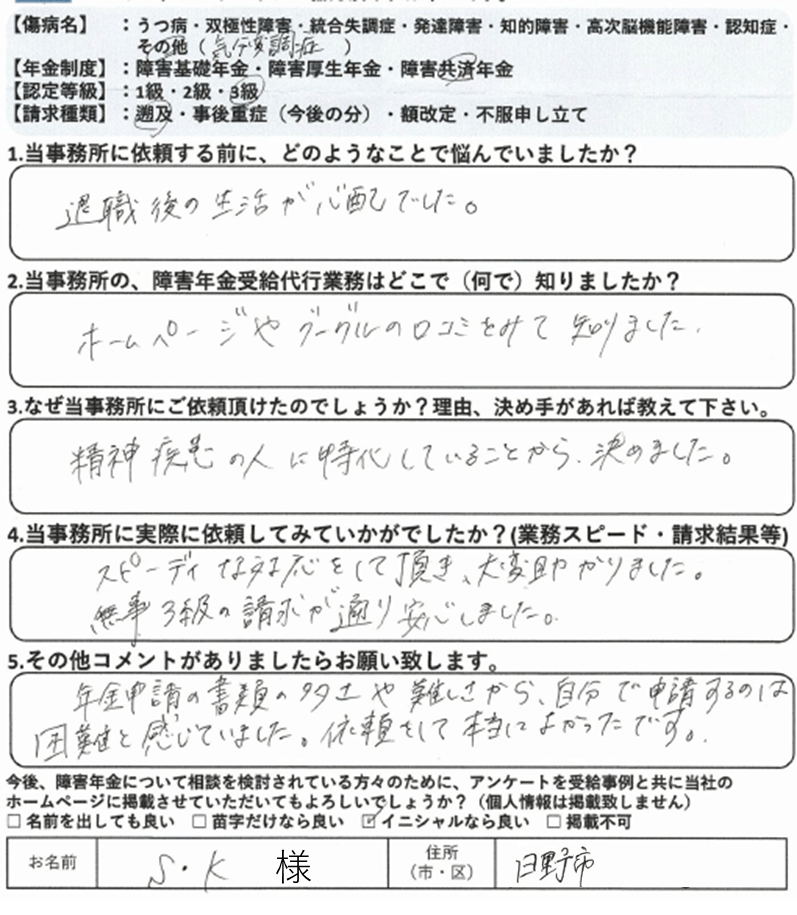 【傷病名】 ：うつ病・双極性障害・統合失調症・発達障害・知的障害・高次脳機能障害・認知症・
その他（気分変調症 ）
【年金制度】：障害基礎年金・障害厚生年金・障害共済年金
【認定等級】：1級・2級・3級
【請求種類】：遡及・事後重症（今後の分）・額改定・不服申し立て
1.当事務所に依頼する前に、どのようなことで悩んでいましたか？
退職後の生活が心配でした。
2.当事務所の、障害年金受給代行業務はどこで（何で）知りましたか？
ホームページやグーグルの口コミをみて知りました.
3.なぜ当事務所にご依頼頂けたのでしょうか？理由、決め手があれば教えて下さい。
精神疾患の人に特化していることから、決めました。
4.当事務所に実際に依頼してみていかがでしたか？(業務スピード・請求結果等)
スピーディな対応をして頂き、大変助かりました。
無事3級の請求が通り安心しました。
5.その他コメントがありましたらお願い致します。
年金申請の書類の多さや難しさから、自分で申請するのは
困難と感じていました。依頼をして本当によかったです。
今後、障害年金について相談を検討されている方々のために、アンケートを受給事例と共に当社の
ホームページに掲載させていただいてもよろしいでしょうか？（個人情報は掲載致しません）
□ 名前を出しても良い □ 苗字だけなら良い ☑ イニシャルなら良い □ 掲載不可
お名前 S・K 様 住所（市・区） 日野市